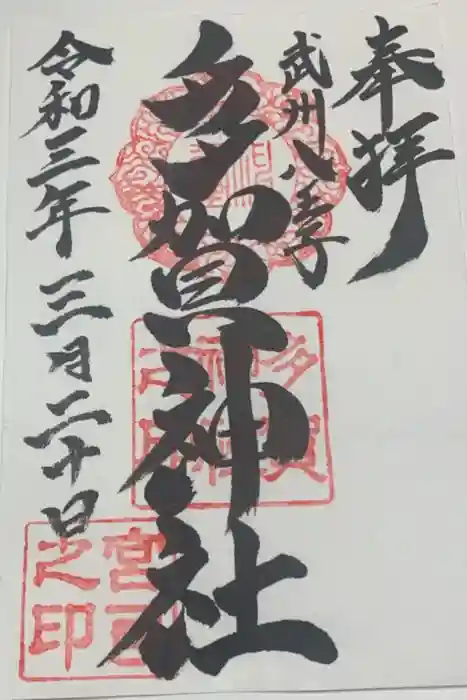 奉拝
武州八王子
多賀神社
令和三年三月二十日
多賀神社之印
宮司之印